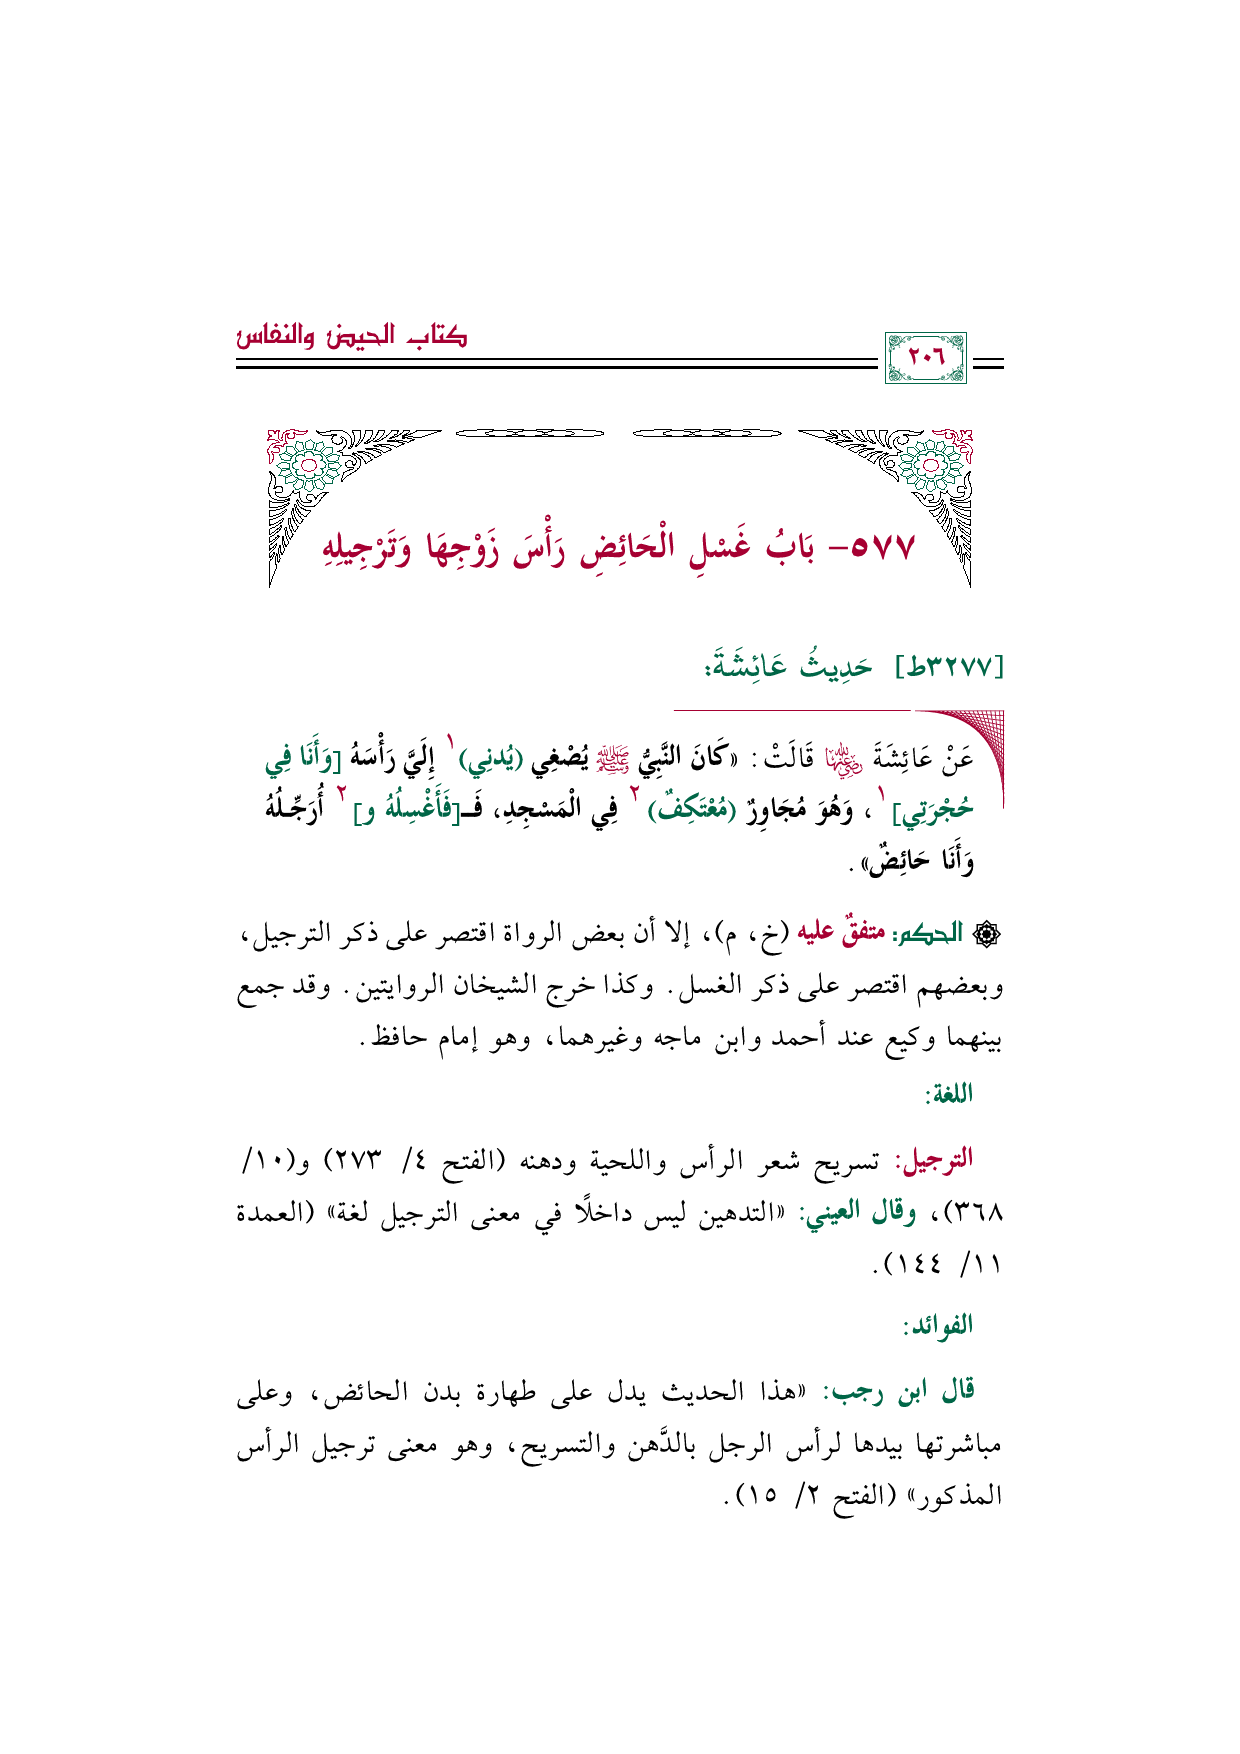 كتاب الحيض والنفاس
٢٠٦
٥٧٧- بَابُ غَسْلِ الْحَائِضِ رَأْسَ زَوْجِهَا وَتَرْجِيلِهِ
[٣٢٧٧ط] حَدِيثُ عَائِشَةَ:
عَنْ عَائِشَةَ رضي الله عنها قَالَتْ: «كَانَ النَّبِيُّ ﷺ يُصْغِي (يُدنِي)١ إِلَيَّ رَأْسَهُ [وَأَنَا فِي
حُجْرَتِي]١، وَهُوَ مُجَاوِرٌ (مُعْتَكِفٌ)٢ فِي الْمَسْجِدِ، فَـ[فَأَغْسِلُهُ و]٢ أُرَجِّـلُهُ
وَأَنَا حَائِضٌ».
الحكم: متفقٌ عليه (خ، م)، إلا أن بعض الرواة اقتصر على ذكر الترجيل،
وبعضهم اقتصر على ذكر الغسل. وكذا خرج الشيخان الروايتين. وقد جمع
بينهما وكيع عند أحمد وابن ماجه وغيرهما، وهو إمام حافظ.
اللغة:
الترجيل: تسريح شعر الرأس واللحية ودهنه (الفتح ٤/ ٢٧٣) و(١٠/
٣٦٨)، وقال العيني: «التدهين ليس داخلًا في معنى الترجيل لغة» (العمدة
١١/ ١٤٤).
الفوائد:
قال ابن رجب: «هذا الحديث يدل على طهارة بدن الحائض، وعلى
مباشرتها بيدها لرأس الرجل بالدَّهن والتسريح، وهو معنى ترجيل الرأس
المذكور» (الفتح ٢/ ١٥).